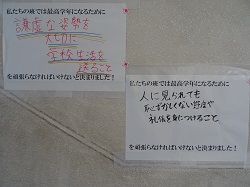 私たちの班では最高学年になるために
謙虚な姿勢を
大切に
学校生活を
送ること
を頑張らなければいけないと決まりました！
私たちの班では最高学年になるために
人に見られても
恥ずかしくない態度や
礼儀を身につけること
を頑張らなければいけないと決まりました！